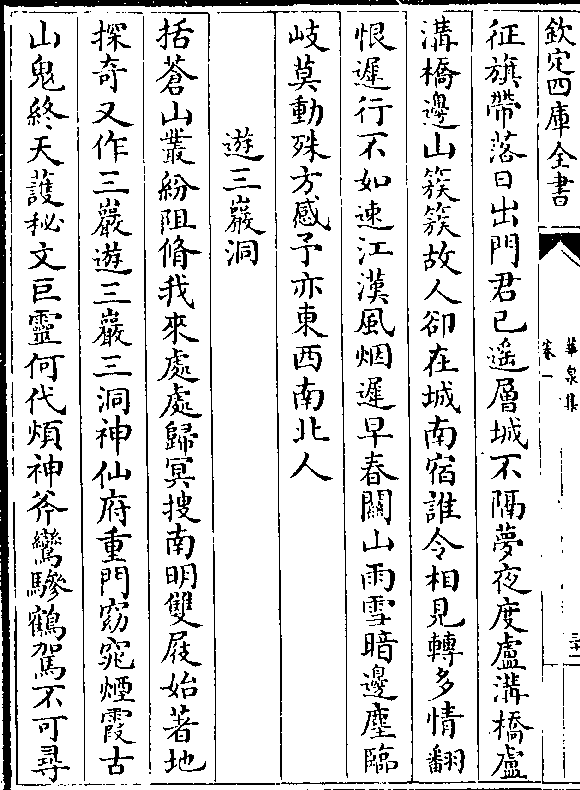 欽定四庫全書
華泉集
卷一
征旗帶落日出門君已遥層城不隔夢夜度盧溝橋盧
溝橋邊山簇簇故人卻在城南宿誰令相見轉多情翻
恨遲行不如速江漢風烟遲早春關山雨雪暗邊塵臨
岐莫動殊方感予亦東西南北人
遊三巖洞
括蒼山叢紛阻脩我來處處歸冥搜南明雙屐始著地
探奇又作三巖遊三巖三洞神仙府重門窈窕煙霞古
山鬼終天護秘文巨靈何代煩神斧鸞驂鶴駕不可尋